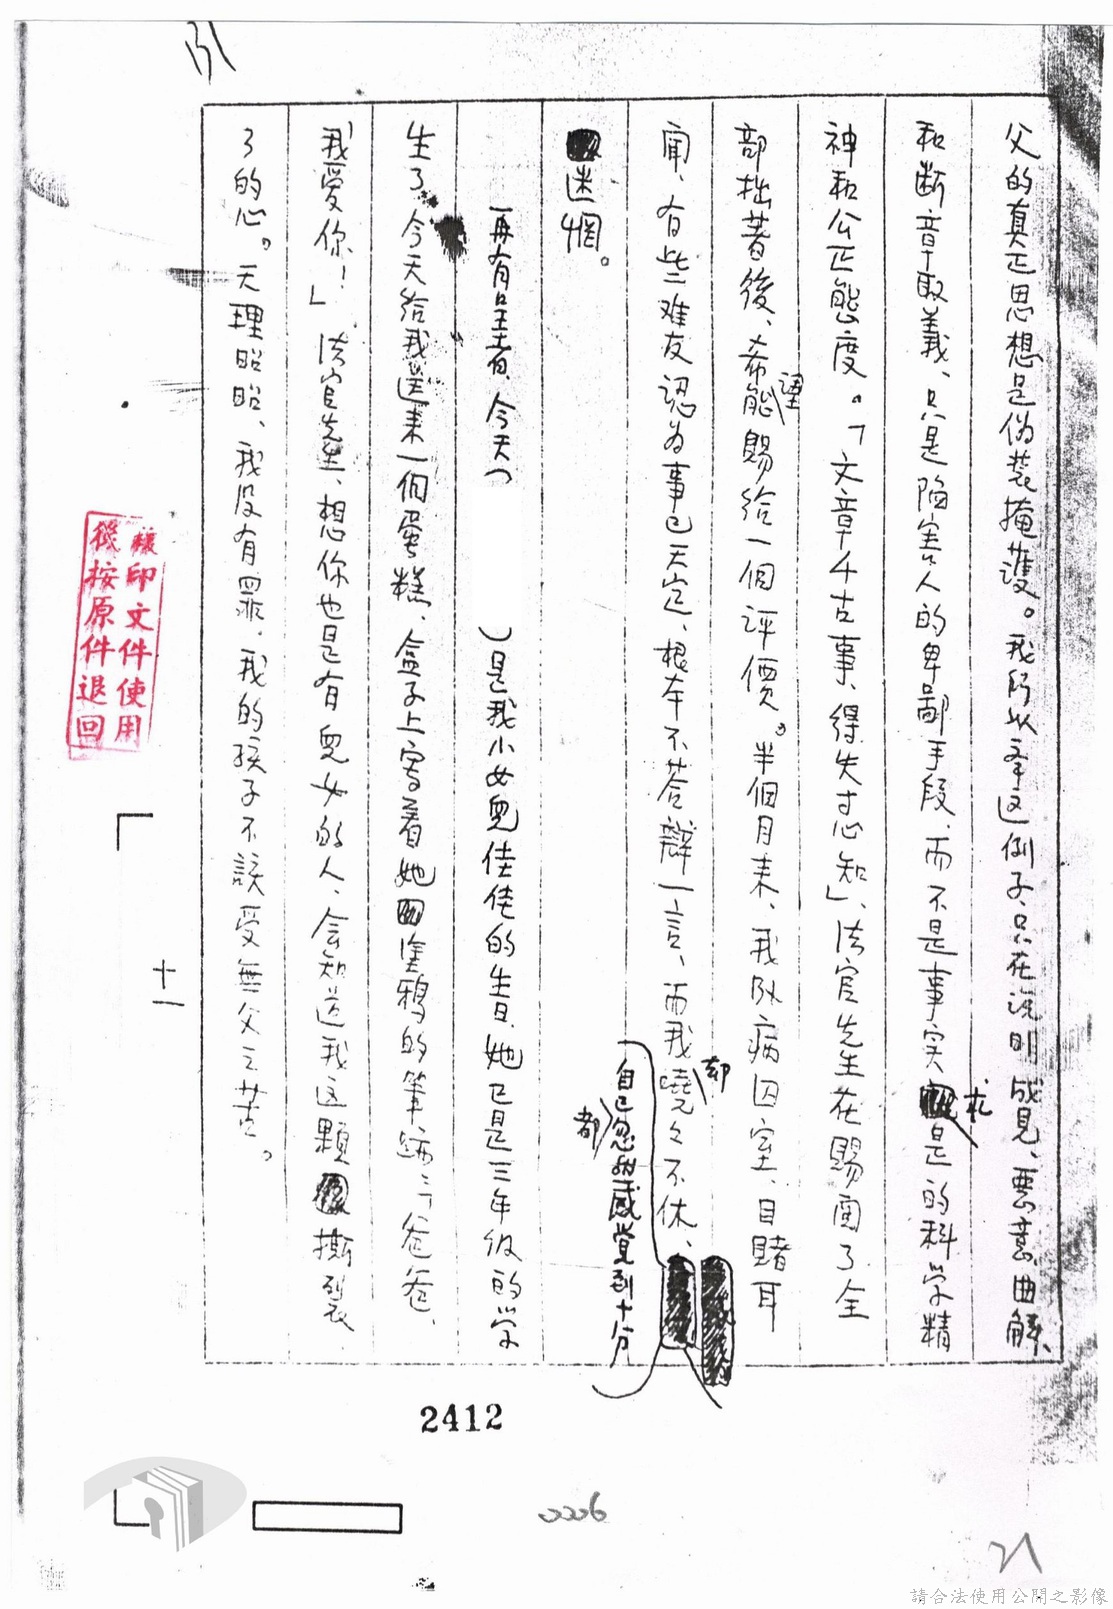 父的真正思想是伪装掩護。我所以举这例子、只在说明成見、惡意曲解、
和断章取義、只是陷害人的卑鄙手段、而不是事实求是的科学精
神和公正態度。「文章千古事、得失寸心知」、法官先生在賜閱了全
部拙著後、希望能賜給一個評價。半個月来、我卧病囚室、目賭耳
聞、有些难友認为事已天定、根本不荅辯一言、而我却嘵々不休、
自己都忽然感覚到十分
迷惘。
再有呈者、今天(
)是我小女兒佳佬的生日、她已是三年级的学
生了、今天給我送来一個蛋糕、盒子上寫着她塗鴉的筆跡:「爸爸、
我爱你！」法官先生、想你也是有兒女的人、会知道我这颗撕裂
了的心。天理昭昭、我没有罪、我的孩子不該受無父之苦。
十一
複印文件使用
後按原件退回
2412
0206
21
請合法使用公開之影像